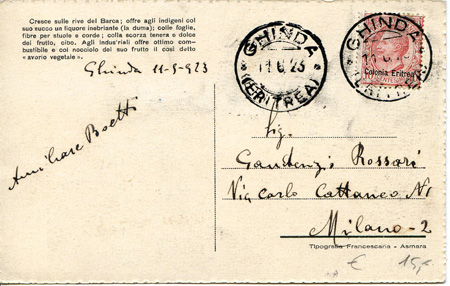 Cresce sulle rive del Barca; offre agli indigeni col
suo succo un liquore inebriante (la duma); colle foglie,
fibre per stuoie e corde; colla scorza tenera e dolce
del frutto, cibo. Agli industriali offre ottimo com-
bustibile e col nocciolo del suo frutto il così detto
« avorio vegetale ».
Ghinda 11-9-923
Amilcare Boetti
GHINDA
(ERITREA)
GHINDA
Colonia Eritrea
Sig.
Gaudenzio Rossari
Via Carlo Cattaneo N 1
Milano-2
Tipografia Francescana - Asmara
€ 15,-